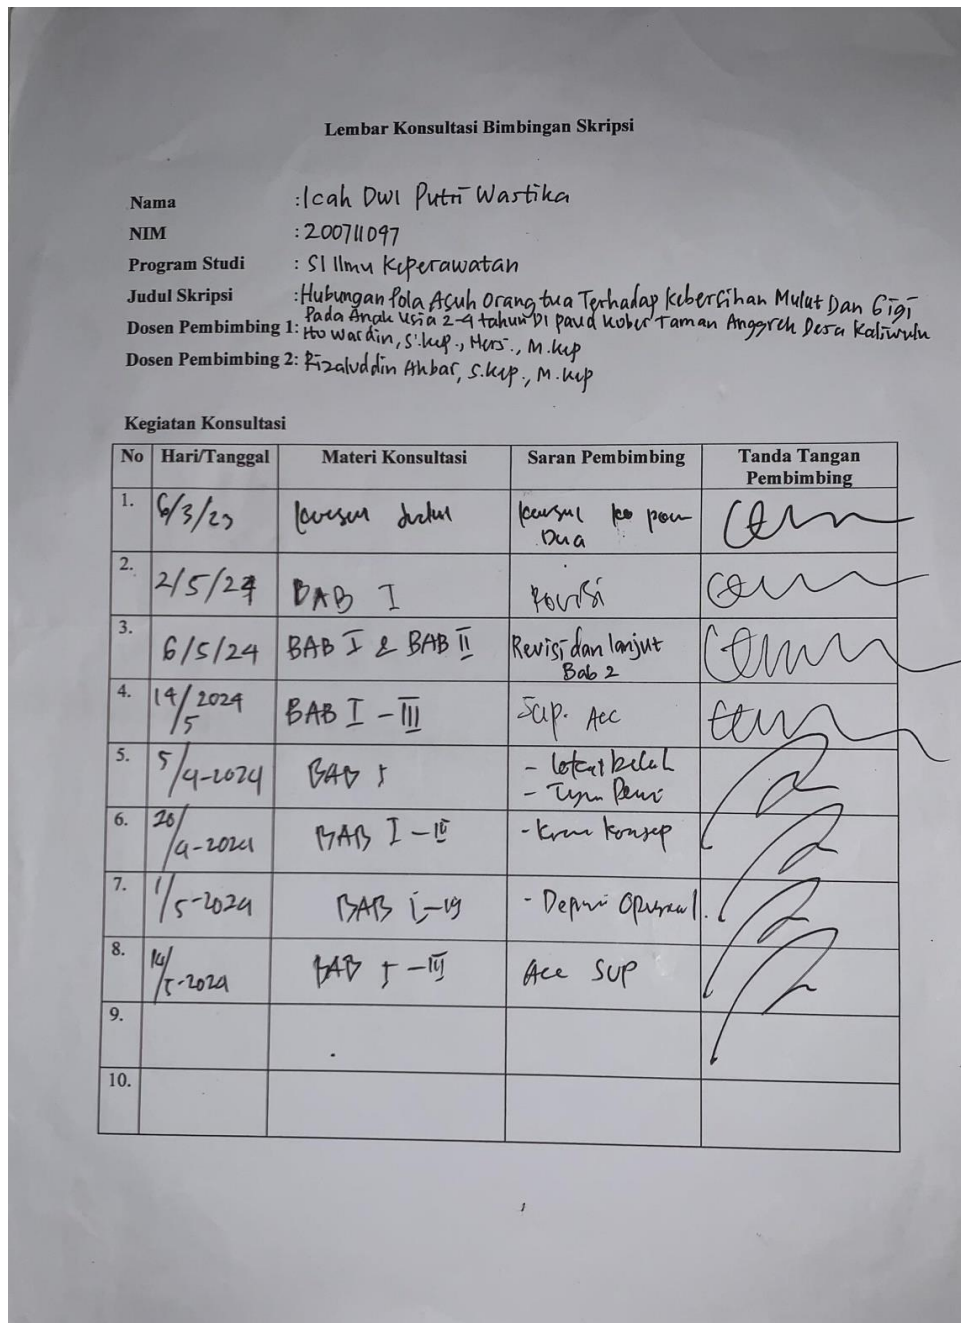 Lembar Konsultasi Bimbingan Skripsi
Nama : Icah Dwi Putri Wastika
NIM : 200711097
Program Studi : S1 Ilmu Keperawatan
Judul Skripsi : Hubungan Pola Asuh Orang tua Terhadap Kebersihan Mulut Dan Gigi
Pada Anak Usia 2-4 tahun Di paud Kober Taman Anggrek Desa Kaliwulu
Dosen Pembimbing 1: Ito Wardin, S.kep., Ners., M.kep
Dosen Pembimbing 2: Rizaluddin Akbar, S.kep., M.kep
Kegiatan Konsultasi
No Hari/Tanggal Materi Konsultasi Saran Pembimbing Tanda Tangan
Pembimbing
1. 6/3/23
Dua
2. 2/5/24 BAB I Revisi
3. 6/5/24 BAB I & BAB II Revisi dan lanjut
Bab 2
4. 14/5 2024 BAB I - III Sup. Acc
5. 5/4-2024 BAB I
6. 20/4-2024 BAB I - III - Konsep
7. 1/5-2024 BAB
8. 14/5-2024 BAB I - III Acc SUP
9.
10.
1